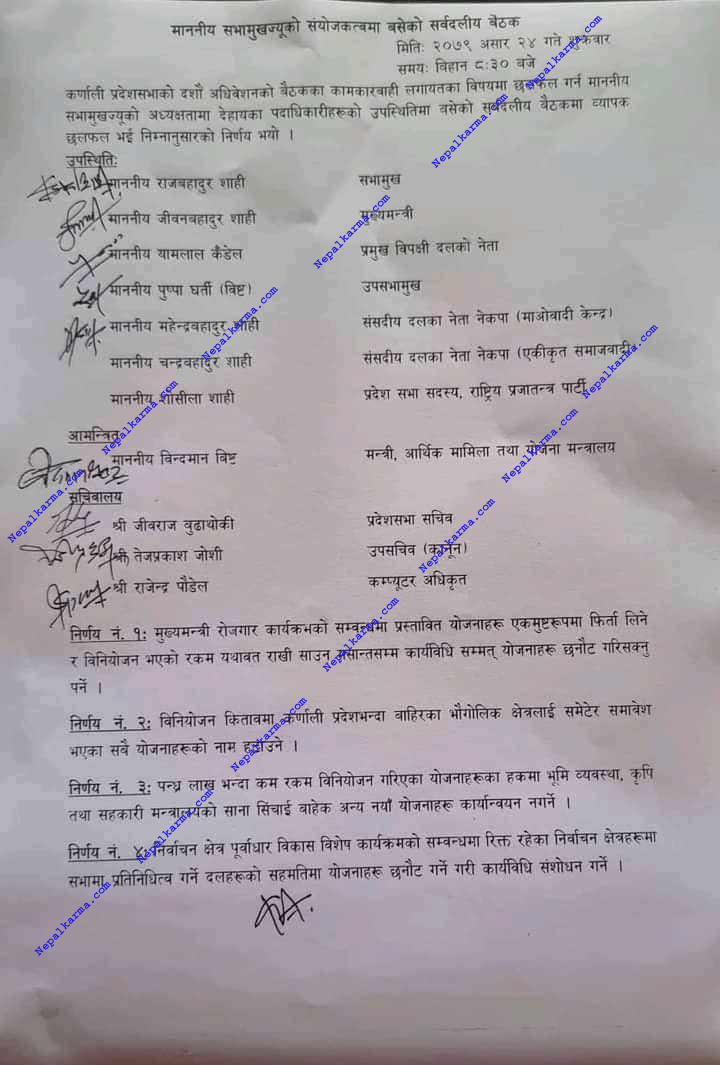 माननीय सभामुखज्यूको संयोजकत्वमा बसेको सर्वदलीय बैठक
मितिः २०७९ असार २४ गते शुक्रवार
समयः विहान ८:३० बजे
कर्णाली प्रदेशसभाको दशौं अधिवेशनको बैठकका कामकारबाही लगायतका विषयमा छलफल गर्न माननीय
सभामुखज्यूको अध्यक्षतामा देहायका पदाधिकारीहरूको उपस्थितिमा वसेको सर्वदलीय बैठकमा व्यापक
छलफल भई निम्नानुसारको निर्णय भयो ।
उपस्थितिः
माननीय राजबहादुर शाही सभामुख
माननीय जीवनबहादुर शाही मुख्यमन्त्री
माननीय यामलाल कँडेल प्रमुख विपक्षी दलको नेता
माननीय पुष्पा घर्ती (विष्ट) उपसभामुख
माननीय महेन्द्रवहादुर शाही संसदीय दलका नेता नेकपा (माओवादी केन्द्र)
माननीय चन्द्रवहादुर शाही संसदीय दलका नेता नेकपा (एकीकृत समाजवादी)
माननीय शासीला शाही प्रदेश सभा सदस्य, राष्ट्रिय प्रजातन्त्र पार्टी
आमन्त्रित
माननीय विन्दमान विष्ट मन्त्री, आर्थिक मामिला तथा योजना मन्त्रालय
सचिवालय
श्री जीवराज वुढाथोकी प्रदेशसभा सचिव
श्री तेजप्रकाश जोशी उपसचिव (कानून)
श्री राजेन्द्र पौडेल कम्प्यूटर अधिकृत
निर्णय नं. १: मुख्यमन्त्री रोजगार कार्यक्रमको सम्वन्धमा प्रस्तावित योजनाहरू एकमुष्टरूपमा फिर्ता लिने
र विनियोजन भएको रकम यथावत राखी साउन मसान्तसम्म कार्यविधि सम्मत् योजनाहरू छनौट गरिसक्नु
पर्ने ।
निर्णय नं. २: विनियोजन कितावमा कर्णाली प्रदेशभन्दा वाहिरका भौगोलिक क्षेत्रलाई समेटेर समावेश
भएका सवै योजनाहरूको नाम हटाउने ।
निर्णय नं. ३: पन्ध्र लाख भन्दा कम रकम विनियोजन गरिएका योजनाहरूका हकमा भूमि व्यवस्था, कृषि
तथा सहकारी मन्त्रालयको साना सिंचाई वाहेक अन्य नयाँ योजनाहरू कार्यान्वयन नगर्ने ।
निर्णय नं. ४: निर्वाचन क्षेत्र पूर्वाधार विकास विशेष कार्यक्रमको सम्वन्धमा रिक्त रहेका निर्वाचन क्षेत्रहरूमा
सभामा प्रतिनिधित्व गर्ने दलहरूको सहमतिमा योजनाहरू छनौट गर्ने गरी कार्यविधि संशोधन गर्ने ।
Nepalkarma.com
Nepalkarma.com
Nepalkarma.com
Nepalkarma.com
Nepalkarma.com
Nepalkarma.com
Nepalkarma.com
Nepalkarma.com
Nepalkarma.com
Nepalkarma.com
Nepalkarma.com
Nepalkarma.com
Nepalkarma.com